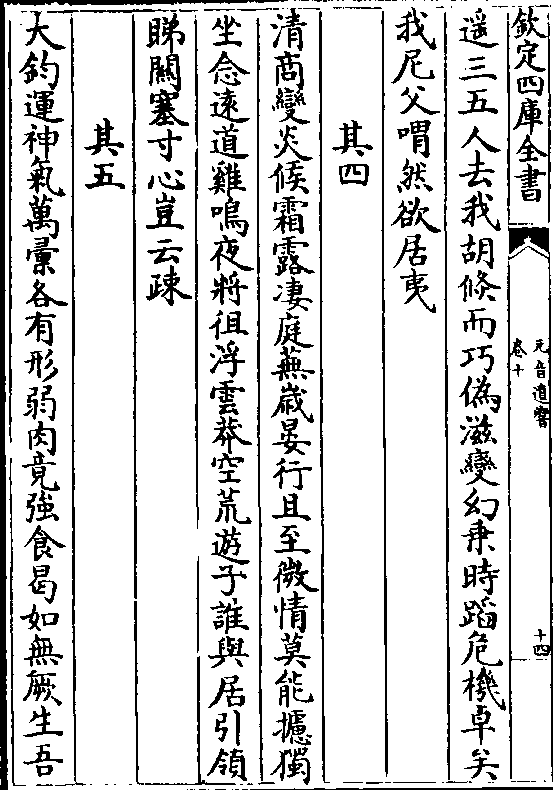 欽定四庫全書
元音遺響
卷十
十四
遥三五人去我胡倐而巧偽滋變幻乗時蹈危機卓矣
我尼父喟然欲居夷
其四
清商變炎候霜露凄庭蕪嵗晏行且至微情莫能攄獨
坐念遠道雞鳴夜將徂浮雲莽空荒遊子誰與居引領
睇關塞寸心豈云疎
其五
大鈞運神氣萬彚各有形弱肉竟強食曷如無厥生吾